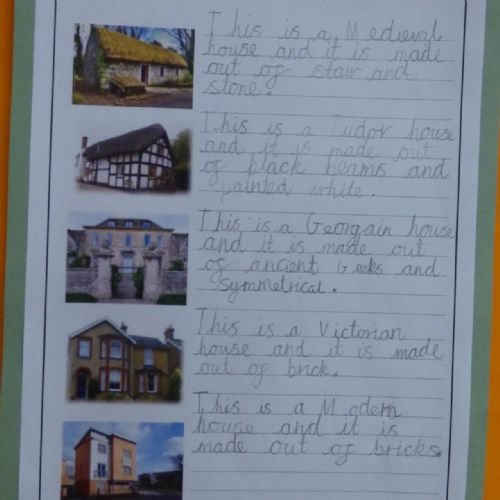 This is a Medieval
house and it is made
out of staw and
stone.
This is a Tudor house
and it is made out
of black beams and
painted white.
This is a Georgain house
and it is made out
of ancient Geeks and
symmetrical.
This is a Victorian
house and it is made
out of brick.
This is a Modern
house and it is
made out of bricks.